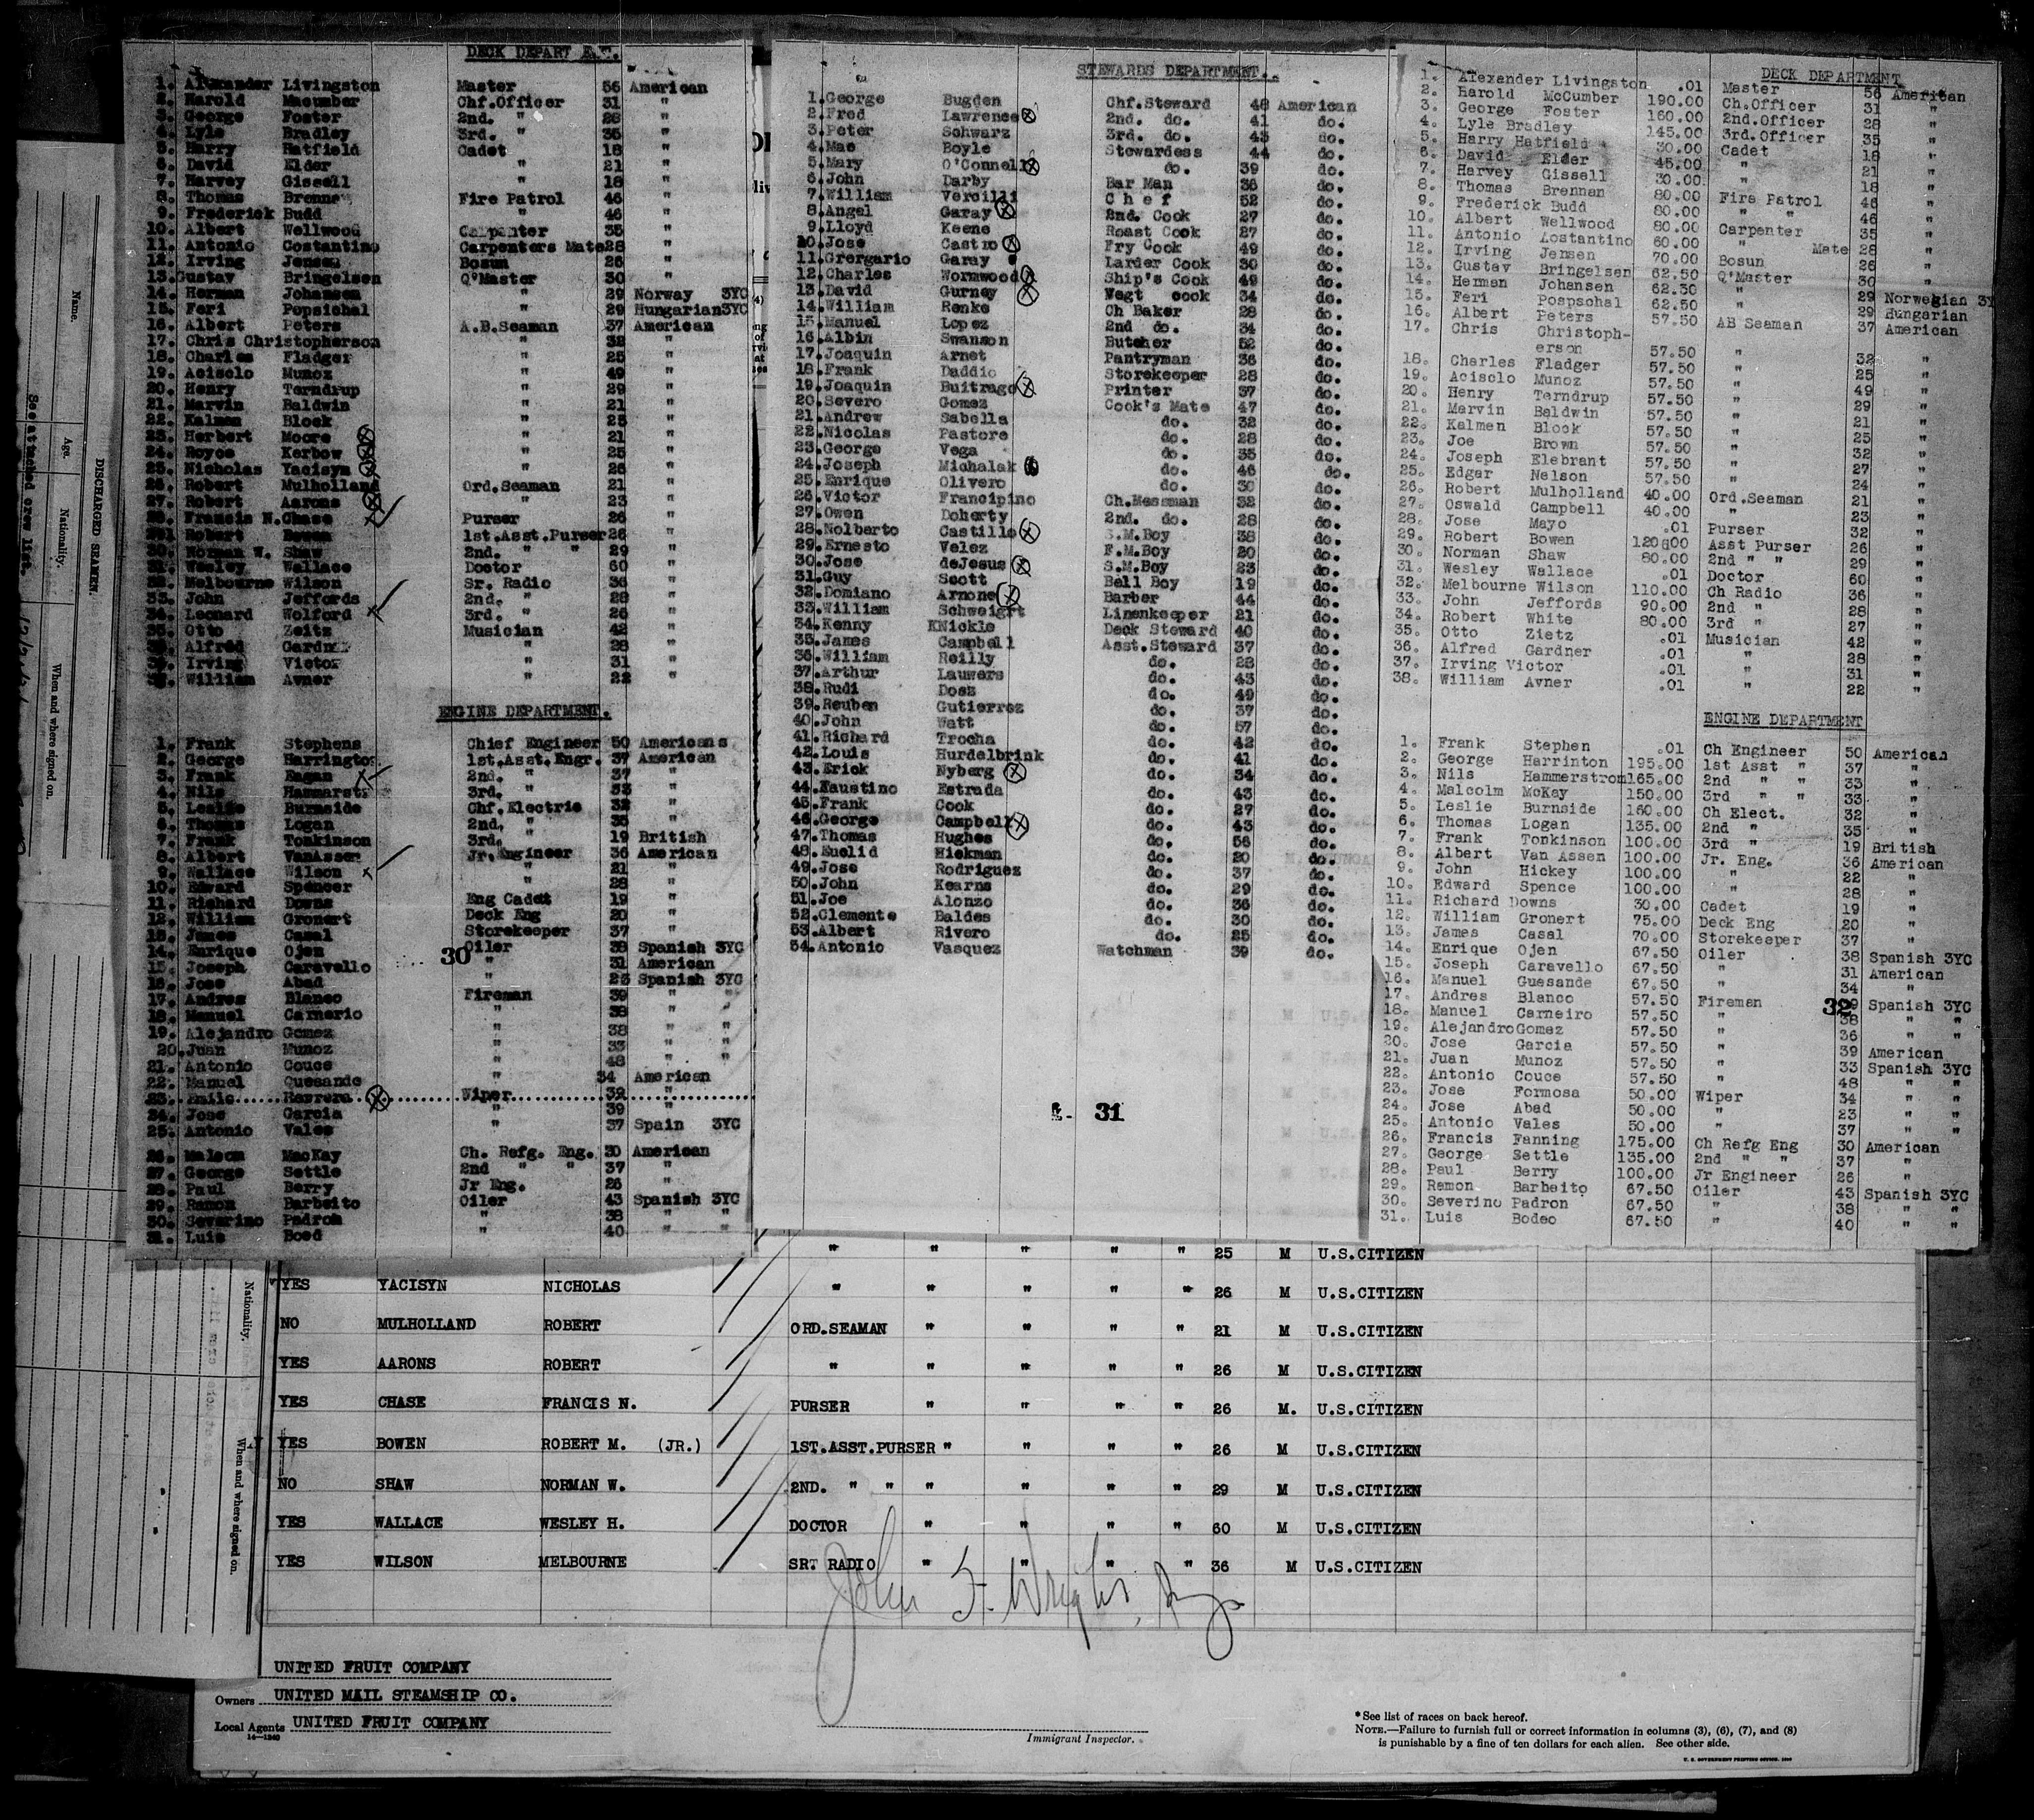 DECK DEPART E.T.
1. Alexander Livingston Master 56 American
2. Harold Macumber Chf.Officer 31 "
3. George Foster 2nd. " 28 "
4. Lyle Bradley 3rd. " 35 "
5. Harry Hatfield Cadet 18 "
6. David Elder " 21 "
7. Harvey Gissell " 18 "
8. Thomas Brenna Fire Patrol 46 "
9. Frederick Budd " 46 "
10. Albert Wellwood Carpenter 35 "
11. Antonio Costantino Carpenters Mate 28 "
12. Irving Jensen Bosun 26 "
13. Gustav Bringelsen Q'Master 30 "
14. Herman Johansen " 29 Norway 3YC
15. Feri Popsichal " 29 Hungarian 3YC
16. Albert Peters A.B.Seaman 37 American
17. Chris Christopherson " 32 "
18. Charles Fladger " 25 "
19. Acisclo Munoz " 49 "
20. Henry Terndrup " 29 "
21. Marvin Baldwin " 21 "
22. Kalman Block " 25 "
23. Herbert Moore " 21 "
24. Royce Kerbow " 25 "
25. Nicholas Yacisyn " 26 "
26. Robert Mulholland Ord.Seaman 21 "
27. Robert Aarons " 23 "
28. Francis N. Chase Purser 26 "
29. Robert Bowen 1st.Asst.Purser 26 "
30. Norman W. Shaw 2nd. " " 29 "
31. Wesley Wallace Doctor 60 "
32. Melbourne Wilson Sr. Radio 36 "
33. John Jeffords 2nd. " 28 "
34. Leonard Wolford 3rd. " 26 "
35. Otto Zeitz Musician 42 "
36. Alfred Gardn " 28 "
37. Irving Victor " 31 "
38. William Avner " 22 "
ENGINE DEPARTMENT.
1. Frank Stephens Chief Engineer 50 Americans
2. George Harrington 1st.Asst.Engr. 37 American
3. Frank Eagan 2nd. " 37 "
4. Nils Hammarst 3rd. " 33 "
5. Leslie Burnside Chf.Electric 32 "
6. Thomas Logan 2nd. " 35 "
7. Frank Tonkinson 3rd. " 19 British
8. Albert VanAssen Jr. Engineer 36 American
9. Wallace Wilson " 21 "
10. Edward Spencer " 28 "
11. Richard Downs Eng Cadet 19 "
12. William Gronert Deck Eng 20 "
13. James Casal Storekeeper 37 "
14. Enrique Ojen Oiler 38 Spanish 3YC
30
15. Joseph Caravello " 31 American
16. Jose Abad " 23 Spanish 3YC
17. Andres Blanco Fireman 39 " "
18. Manuel Carnerio " 38 " "
19. Alejandro Gomez " 38 " "
20. Juan Munoz " 33 " "
21. Antonio Couce " 48 " "
22. Manuel Quesande " 34 American
23. Emilo Herrera Wiper 32 "
24. Jose Garcia " 39 "
25. Antonio Vales " 37 Spain 3YC
26. Malcom MacKay Ch. Refg. Eng. 30 American
27. George Settle 2nd " " 37 "
28. Paul Berry Jr Eng. 26 "
29. Ramon Barbeito Oiler 43 Spanish 3YC
30. Severino Padron " 38 " "
31. Luis Boed " 40 " "
STEWARDS DEPARTMENT.
1. George Bugden Chf.Steward 48 American
2. Fred Lawrence 2nd. do. 41 do.
3. Peter Schwarz 3rd. do. 43 do.
4. Mae Boyle Stewardess 44 do.
5. Mary O'Connell do. 39 do.
6. John Darby Bar Man 36 do.
7. William Vercilli Chef 52 do.
8. Angel Garay 2nd. Cook 27 do.
9. Lloyd Keene Roast Cook 27 do.
10. Jose Castro Fry Cook 49 do.
11. Grergario Garay Larder Cook 30 do.
12. Charles Wormwood Ship's Cook 49 do.
13. David Gurney Vegt cook 34 do.
14. William Renke Ch Baker 28 do.
15. Manuel Lopez 2nd do. 34 do.
16. Albin Swanson Butcher 52 do.
17. Joaquin Arnet Pantryman 36 do.
18. Frank Daddio Storekeeper 28 do.
19. Joaquin Buitrago Printer 37 do.
20. Severo Gomez Cook's Mate 47 do.
21. Andrew Sabella do. 32 do.
22. Nicolas Pastore do. 28 do.
23. George Vega do. 35 do.
24. Joseph Michalak do. 46 do.
25. Enrique Olivero do. 30 do.
26. Victor Francipino Ch.Messman 32 do.
27. Owen Doherty 2nd. do. 28 do.
28. Nolberto Castillo S.M.Boy 38 do.
29. Ernesto Velez F.M.Boy 20 do.
30. Jose deJesus S.M.Boy 23 do.
31. Guy Scott Bell Boy 19 do.
32. Domiano Arnone Barber 44 do.
33. William Schweigrt Linenkeeper 21 do.
34. Kenny KNickle Deck Steward 40 do.
35. James Campbell Asst.Steward 37 do.
36. William Reilly do. 28 do.
37. Arthur Lauwers do. 43 do.
38. Rudi Dosz do. 49 do.
39. Reuben Gutierrez do. 37 do.
40. John Watt do. 57 do.
41. Richard Trocha do. 42 do.
42. Louis Hurdelbrink do. 41 do.
43. Erick Nyberg do. 34 do.
44. Faustino Estrada do. 43 do.
45. Frank Cook do. 27 do.
46. George Campbell do. 43 do.
47. Thomas Hughes do. 56 do.
48. Euclid Hickman do. 20 do.
49. Jose Rodriguez do. 37 do.
50. John Kearns do. 29 do.
51. Joe Alonzo do. 36 do.
52. Clemente Baldes do. 30 do.
53. Albert Rivero do. 25 do.
54. Antonio Vasquez Watchman 39 do.
31
DECK DEPARTMENT
1. Alexander Livingston .01 Master 56 American
2. Harold McCumber 190.00 Ch.Officer 31 "
3. George Foster 160.00 2nd.Officer 28 "
4. Lyle Bradley 145.00 3rd.Officer 35 "
5. Harry Hatfield 30.00 Cadet 18 "
6. David Elder 45.00 " 21 "
7. Harvey Gissell 30.00 " 18 "
8. Thomas Brennan 80.00 Fire Patrol 46 "
9. Frederick Budd 80.00 " " 46 "
10. Albert Wellwood 80.00 Carpenter 35 "
11. Antonio Aostantino 60.00 " Mate 28 "
12. Irving Jensen 70.00 Bosun 26 "
13. Gustav Bringelsen 62.50 Q'Master 30 "
14. Herman Johansen 62.50 " 29 Norwegian 3Y
15. Feri Pospschal 62.50 " 29 Hungarian
16. Albert Peters 57.50 AB Seaman 37 American
17. Chris Christoph-
erson 57.50 " 32 "
18. Charles Fladger 57.50 " 25 "
19. Acisclo Munoz 57.50 " 49 "
20. Henry Terndrup 57.50 " 29 "
21. Marvin Baldwin 57.50 " 21 "
22. Kalmen Block 57.50 " 25 "
23. Joe Brown 57.50 " 32 "
24. Joseph Elebrant 57.50 " 27 "
25. Edgar Nelson 57.50 " 24 "
26. Robert Mulholland 40.00 Ord.Seaman 21 "
27. Oswald Campbell 40.00 " 23 "
28. Jose Mayo .01 Purser 32 "
29. Robert Bowen 120g00 Asst Purser 26 "
30. Norman Shaw 80.00 2nd " " 29 "
31. Wesley Wallace .01 Doctor 60 "
32. Melbourne Wilson 110.00 Ch Radio 36 "
33. John Jeffords 90.00 2nd " 28 "
34. Robert White 80.00 3rd " 27 "
35. Otto Zietz .01 Musician 42 "
36. Alfred Gardner .01 " 28 "
37. Irving Victor .01 " 31 "
38. William Avner .01 " 22 "
ENGINE DEPARTMENT
1. Frank Stephen .01 Ch Engineer 50 American
2. George Harrinton 195.00 1st Asst " 37 "
3. Nils Hammerstrom 165.00 2nd " " 33 "
4. Malcolm McKay 150.00 3rd " " 33 "
5. Leslie Burnside 160.00 Ch Elect. 32 "
6. Thomas Logan 135.00 2nd " 35 "
7. Frank Tonkinson 100.00 3rd " 19 British
8. Albert Van Assen 100.00 Jr. Eng. 36 American
9. John Hickey 100.00 " 22 "
10. Edward Spence 100.00 " 28 "
11. Richard Downs 30.00 Cadet 19 "
12. William Gronert 75.00 Deck Eng 20 "
13. James Casal 70.00 Storekeeper 37 "
14. Enrique Ojen 67.50 Oiler 38 Spanish 3YC
15. Joseph Caravello 67.50 " 31 American
16. Manuel Guesande 67.50 " 34 "
17. Andres Blanco 57.50 Fireman 39 Spanish 3YC
32
18. Manuel Carneiro 57.50 " 38 " "
19. Alejandro Gomez 57.50 " 36 " "
20. Jose Garcia 57.50 " 39 American
21. Juan Munoz 57.50 " 33 Spanish 3YC
22. Antonio Couce 57.50 " 48 " "
23. Jose Formosa 50.00 Wiper 34 " "
24. Jose Abad 50.00 " 23 " "
25. Antonio Vales 50.00 " 37 " "
26. Francis Fanning 175.00 Ch Refg Eng 30 American
27. George Settle 135.00 2nd " " 37 "
28. Paul Berry 100.00 Jr Engineer 26 "
29. Ramon Barbeito 67.50 Oiler 43 Spanish 3YC
30. Severino Padron 67.50 " 38 " "
31. Luis Bodeo 67.50 " 40 " "
" " " " " 25 M U.S.CITIZEN
YES YACISYN NICHOLAS " " " " " 26 M U.S.CITIZEN
NO MULHOLLAND ROBERT ORD.SEAMAN " " " " 21 M U.S.CITIZEN
YES AARONS ROBERT " " " " " 26 M U.S.CITIZEN
YES CHASE FRANCIS N. PURSER " " " " 26 M. U.S.CITIZEN
YES BOWEN ROBERT M. (JR.) 1ST.ASST.PURSER " " " " 26 M U.S.CITIZEN
NO SHAW NORMAN W. 2ND. " " " " " " 29 M U.S.CITIZEN
YES WALLACE WESLEY H. DOCTOR " " " " 60 M U.S.CITIZEN
YES WILSON MELBOURNE SR. RADIO " " " " 36 M U.S.CITIZEN
John F. Wright
UNITED FRUIT COMPANY
Owners UNITED MAIL STEAMSHIP CO.
Local Agents UNITED FRUIT COMPANY
14—1240
Immigrant Inspector.
*See list of races on back hereof.
NOTE.—Failure to furnish full or correct information in columns (3), (6), (7), and (8)
is punishable by a fine of ten dollars for each alien. See other side.
U. S. GOVERNMENT PRINTING OFFICE
DISCHARGED SEAMEN.
Name.
Age.
Nationality.
When and where signed on.
See attached crew list.
Nationality.
When and where signed on.